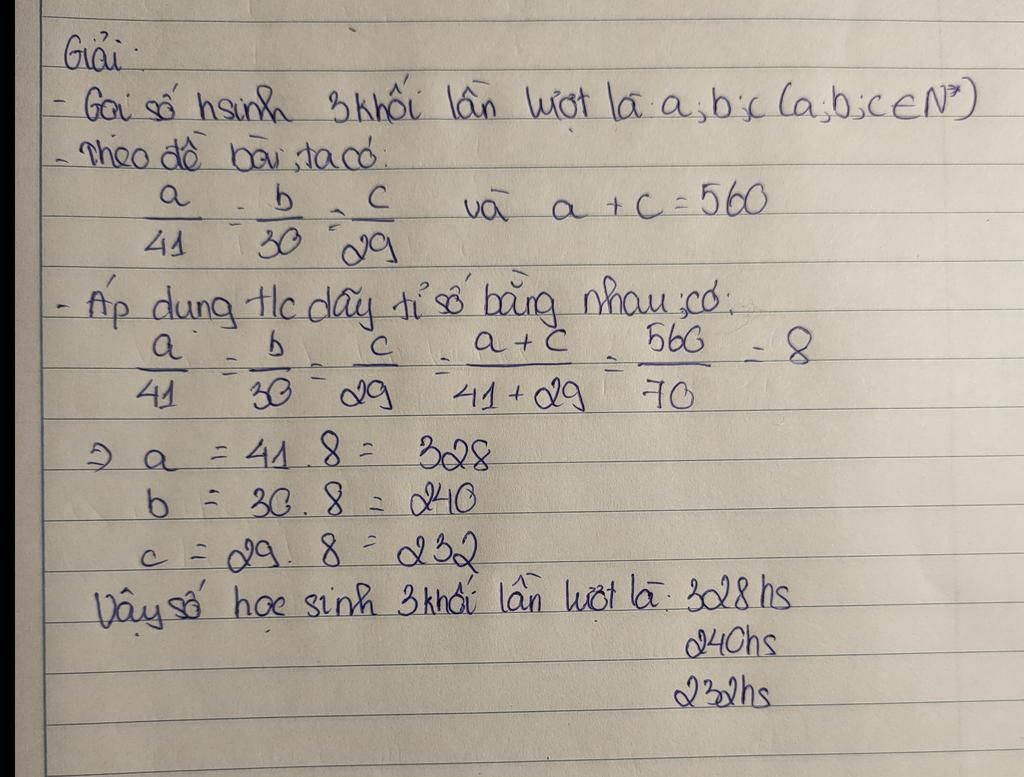 Giải:
- Gọi số hsinh 3 khối lần lượt là: a;b;c (a;b;c ∈ N*)
- Theo đề bài, ta có:
a/41 = b/30 = c/29 và a + c = 560
- Áp dụng t/c dãy tỉ số bằng nhau, có:
a/41 = b/30 = c/29 = a + c/41 + 29 = 560/70 = 8
⇒ a = 41 . 8 = 328
b = 30 . 8 = 240
c = 29 . 8 = 232
Vậy số học sinh 3 khối lần lượt là: 328hs
240hs
232hs